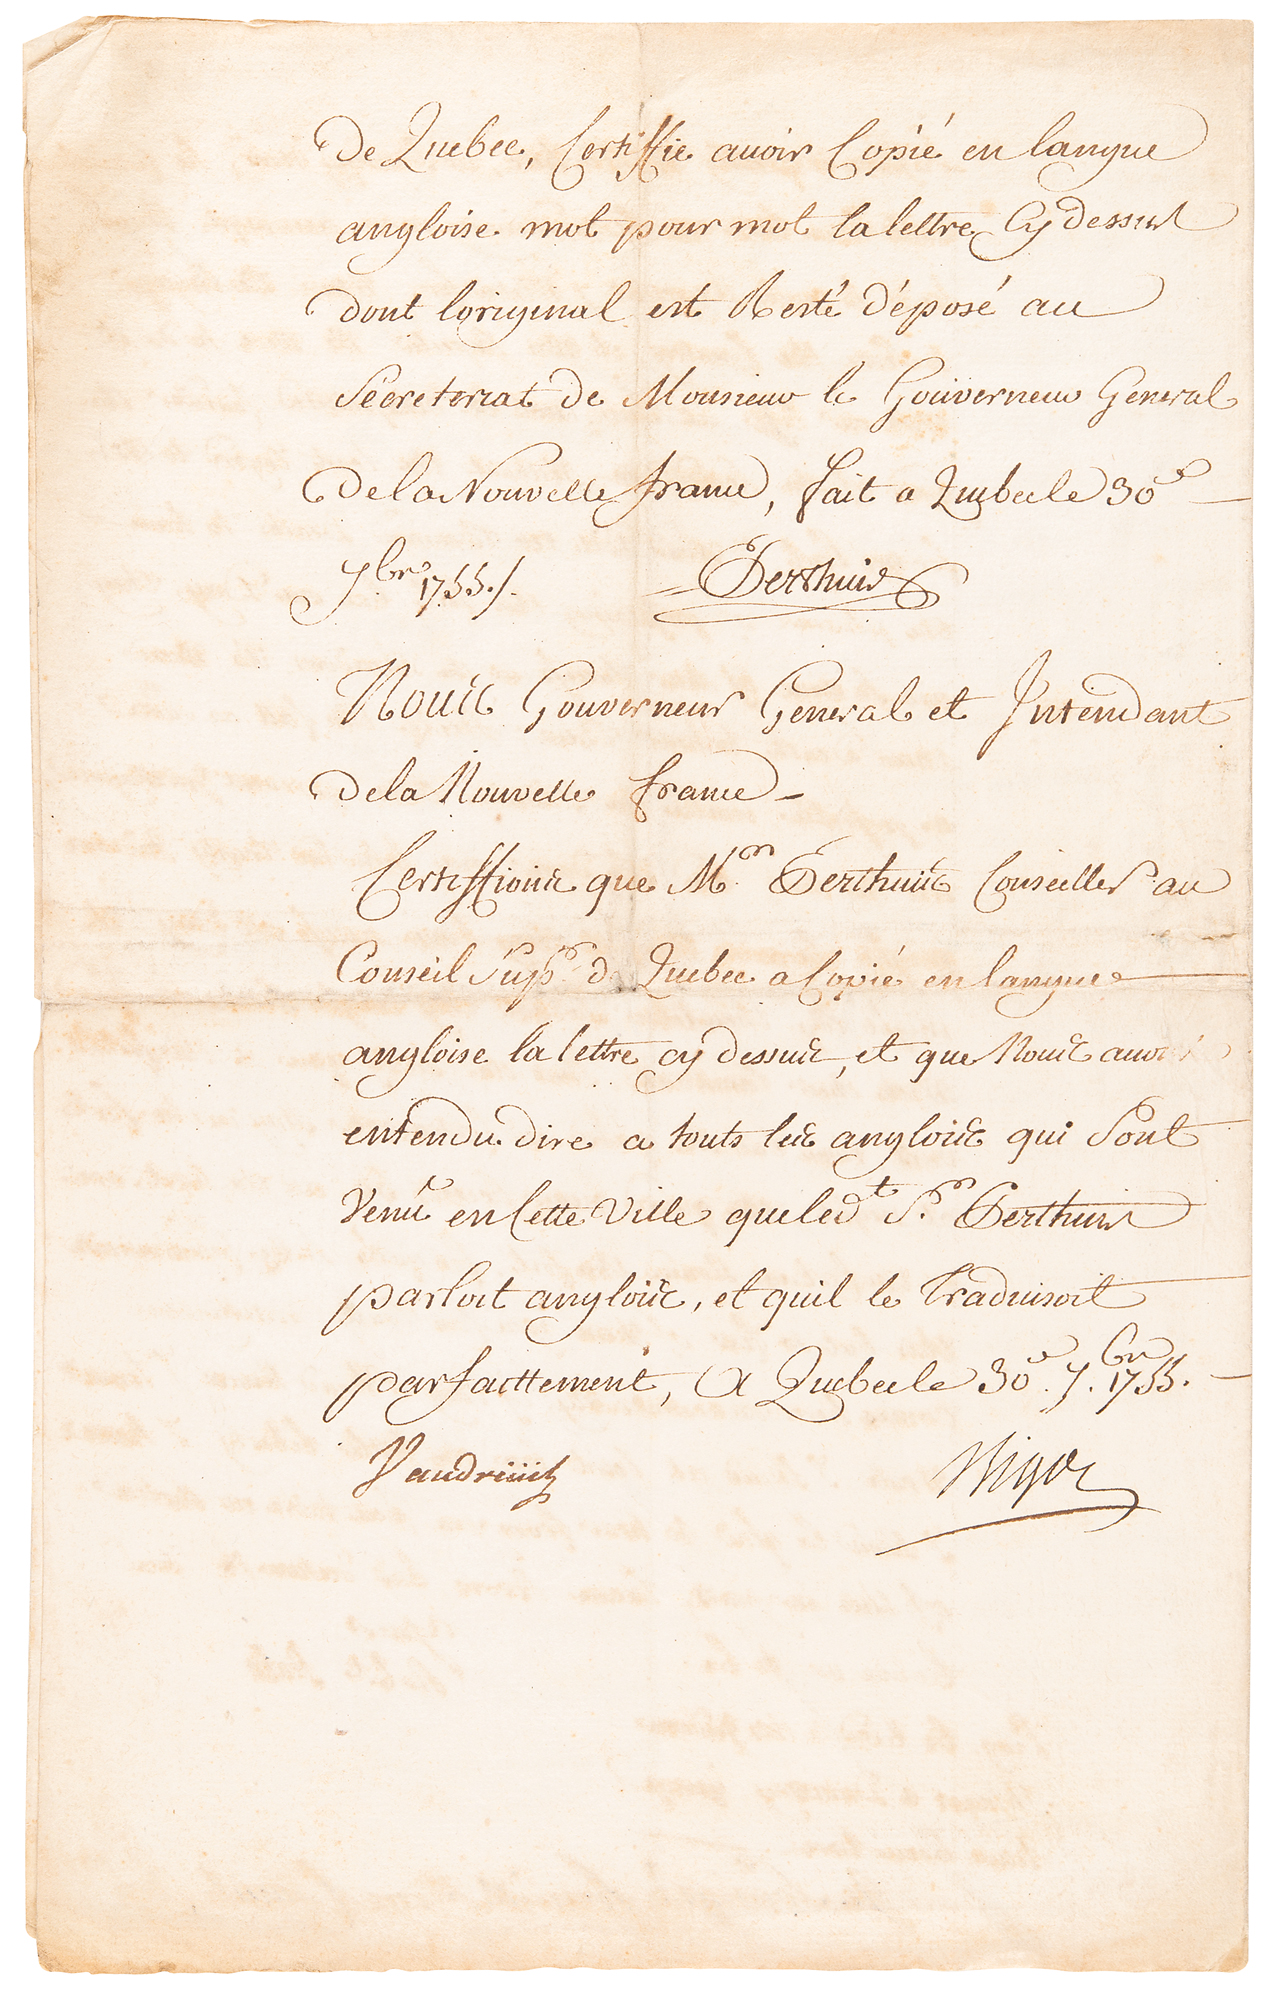 de Quebec, Certiffie avoir Copié en langue
angloise mot pour mot la lettre Cy dessus
dont loriginal est Resté déposé au
Secretariat de Monsieur le Gouverneur General
de la Nouvelle france, fait a Quebec le 30e
7bre 1755./.
Perthuis
Nous Gouverneur General et Intendant
de la Nouvelle france –
Certiffions que Mr. Perthuis Conseiller au
Conseil Supr. de Quebec a Copié en langue
angloise la lettre cy dessus, et que Nous avons
entendu dire a touts les anglois qui Sont
Venus en Cette Ville que ledt Sr. Perthuis
parloit anglois, et quil le Traduisoit
parfaittement, A Quebec le 30e. 7bre. 1755. –
Vaudreuil
Bigot